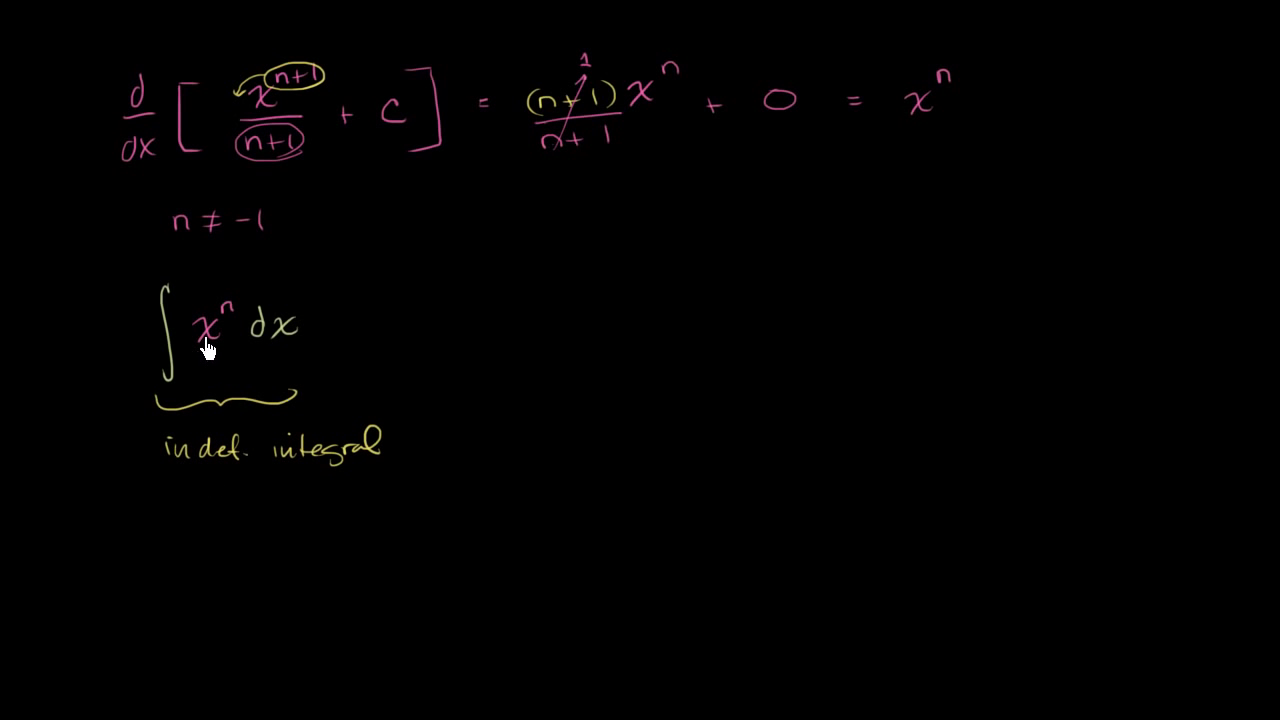 d/dx [ x^(n+1)/(n+1) + C ] = (n+1)x^n/(n+1) + 0 = x^n
1
n ≠ -1
∫ x^n dx
indef. integral